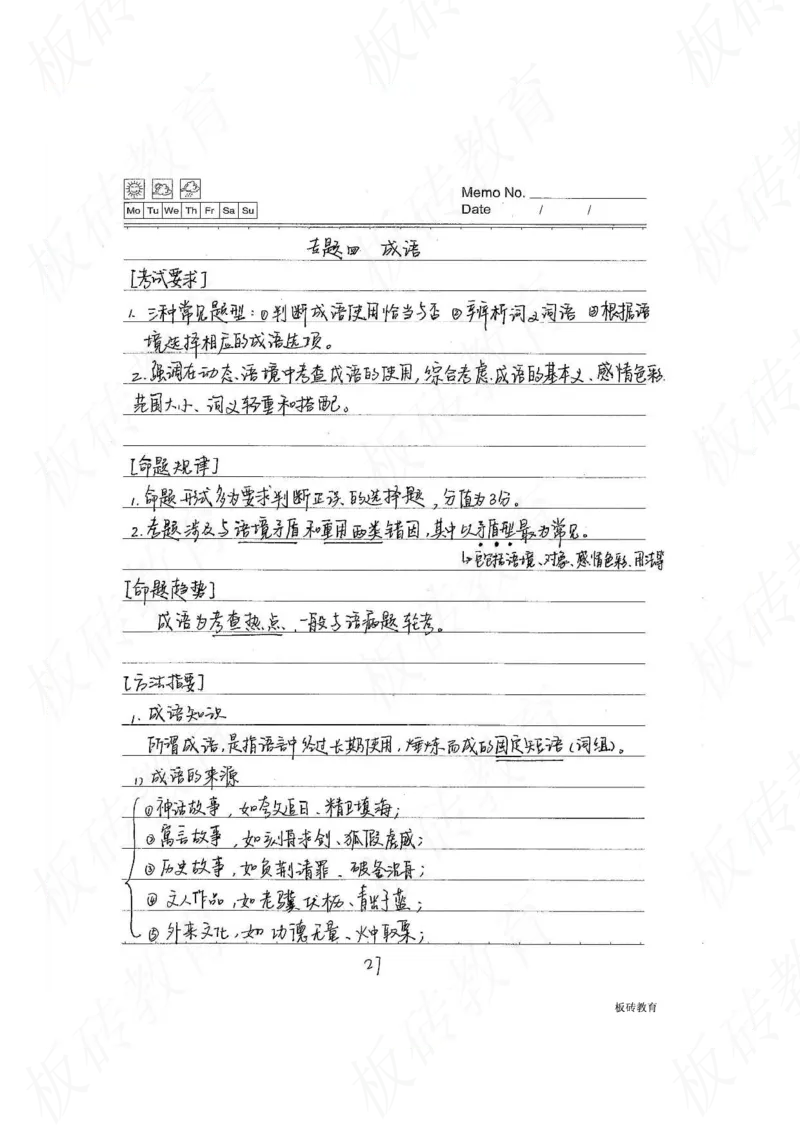 Memo No.
Mo Tu We Th Fr Sa Su
Date / /
专题四 成语
[考试要求]
1. 三种常见题型：①判断成语使用恰当与否 ②辨析词义词语 ③根据语
境选择相应的成语选项。
2. 强调在动态语境中考查成语的使用，综合考虑成语的基本义、感情色彩、
范围大小、词义轻重和搭配。
[命题规律]
1. 命题形式多为要求判断正误的选择题，分值为3分。
2. 考题涉及与语境矛盾和重用两类错因，其中以矛盾型最为常见。
↳包括语境、对象、感情色彩、用法等
[命题趋势]
成语为考查热点，一般与语病题轮考。
[方法指要]
1. 成语知识
所谓成语，是指语言中经过长期使用，锤炼而成的固定短语（词组）。
1) 成语的来源
①神话故事，如夸父追日、精卫填海；
②寓言故事，如刻舟求剑、狐假虎威；
③历史故事，如负荆请罪、破釜沉舟；
④文人作品，如老骥伏枥、青出于蓝；
⑤外来文化，如功德无量、火中取栗；
27
板砖教育